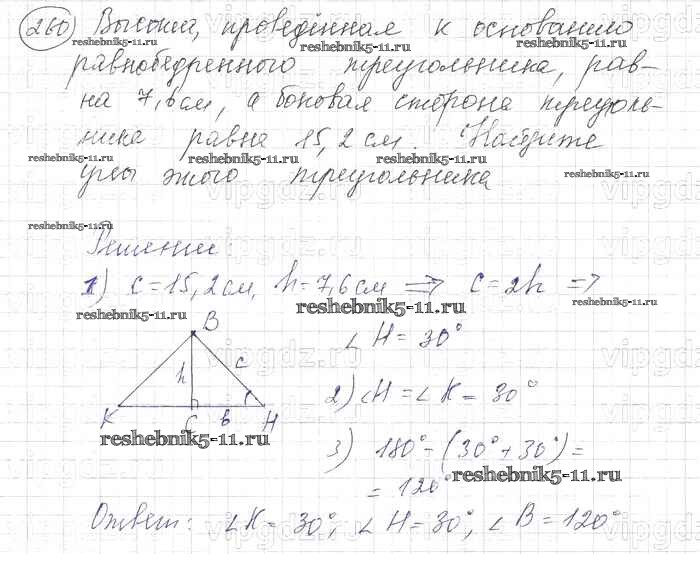 260 Высота, проведённая к основанию
reshebnik5-11.ru reshebnik5-11.ru
равнобедренного треугольника, рав-
на 7,6 см, а боковая сторона треуголь-
ника равна 15,2 см. Найдите
reshebnik5-11.ru reshebnik5-11.ru reshebnik5-11.ru
углы этого треугольника
reshebnik5-11.ru
reshebnik5-11.ru
Решение:
1) c = 15,2 см, h = 7,6 см ⇒ c = 2h ⇒
reshebnik5-11.ru reshebnik5-11.ru reshebnik5-11.ru
∠H = 30°
B
h c
K C b H
2) ∠H = ∠K = 30°
reshebnik5-11.ru
3) 180° - (30° + 30°) =
reshebnik5-11.ru
= 120°
Ответ: ∠K = 30°, ∠H = 30°, ∠B = 120°